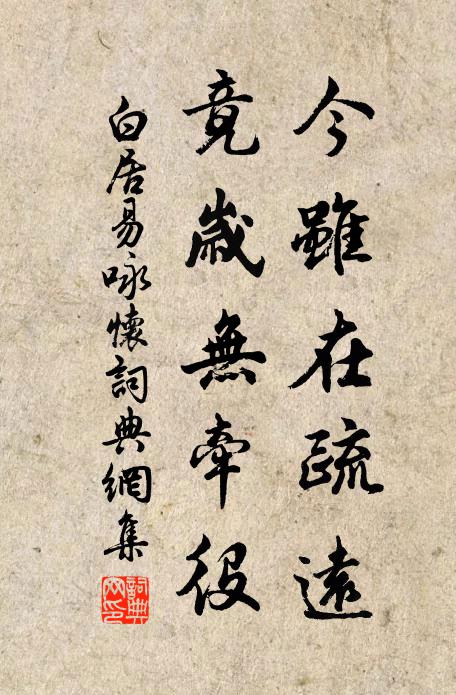 今雖在疏遠
竟歲無牽役
白居易咏懷詞典網集
詞典网印